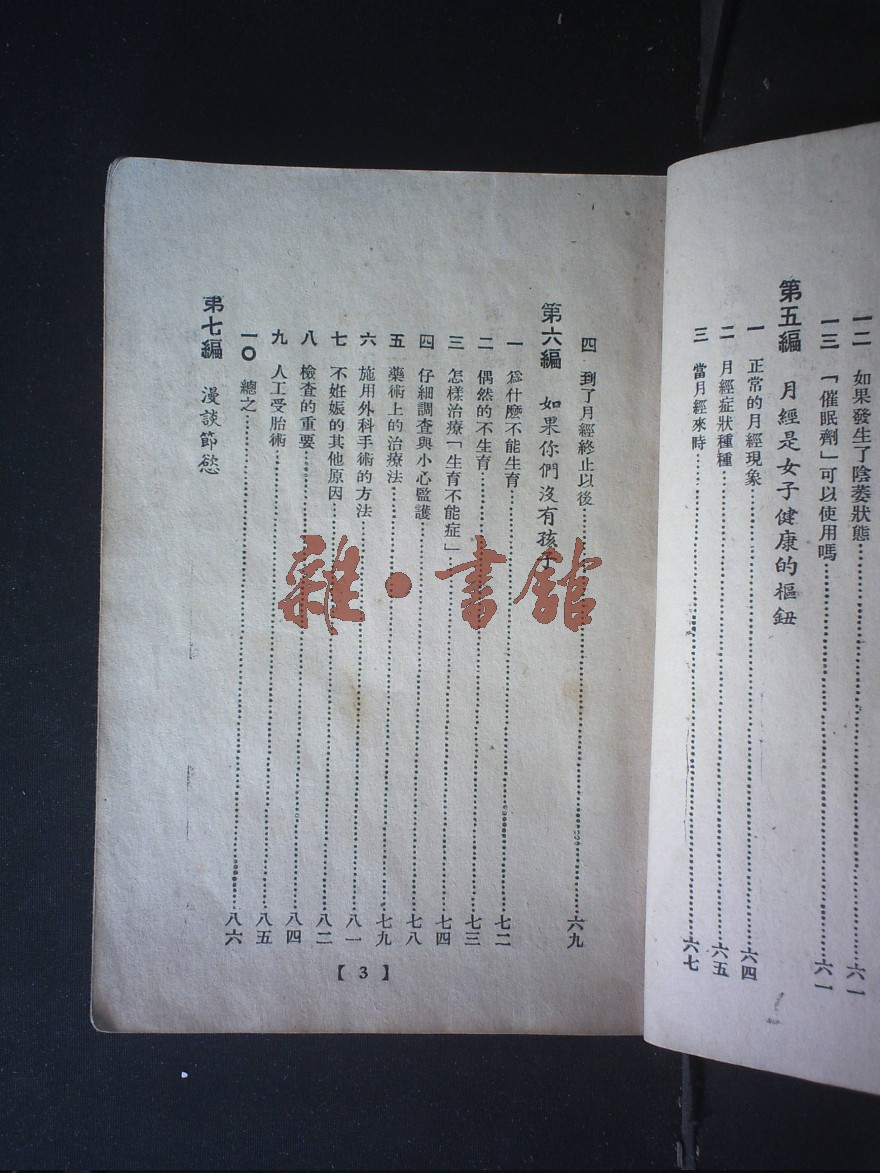 一二 如果發生了陰萎狀態……六一
一三 「催眠劑」可以使用嗎……六一
第五編 月經是女子健康的樞鈕
一 正常的月經現象……六四
二 月經症狀種種……六五
三 當月經來時……六七
四 到了月經終止以後……六九
第六編 如果你們沒有孩子
一 爲什麽不能生育……七二
二 偶然的不生育……七三
三 怎樣治療「生育不能症」……七四
四 仔細調查與小心監護……七八
五 藥術上的治療法……七九
六 施用外科手術的方法……八一
七 不妊娠的其他原因……八二
八 檢查的重要……八四
九 人工受胎術……八五
一〇 總之……八六
第七編 漫談節慾
【3】
雜·書館